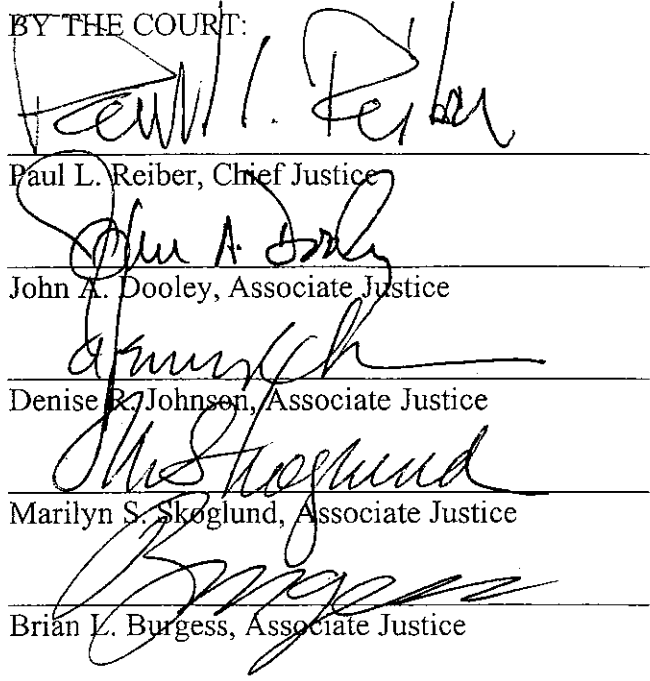 BY THE COURT:
Paul L. Reiber
Paul L. Reiber, Chief Justice
John A. Dooley
John A. Dooley, Associate Justice
Denise R. Johnson, Associate Justice
M S Skoglund
Marilyn S. Skoglund, Associate Justice
Burgess
Brian L. Burgess, Associate Justice